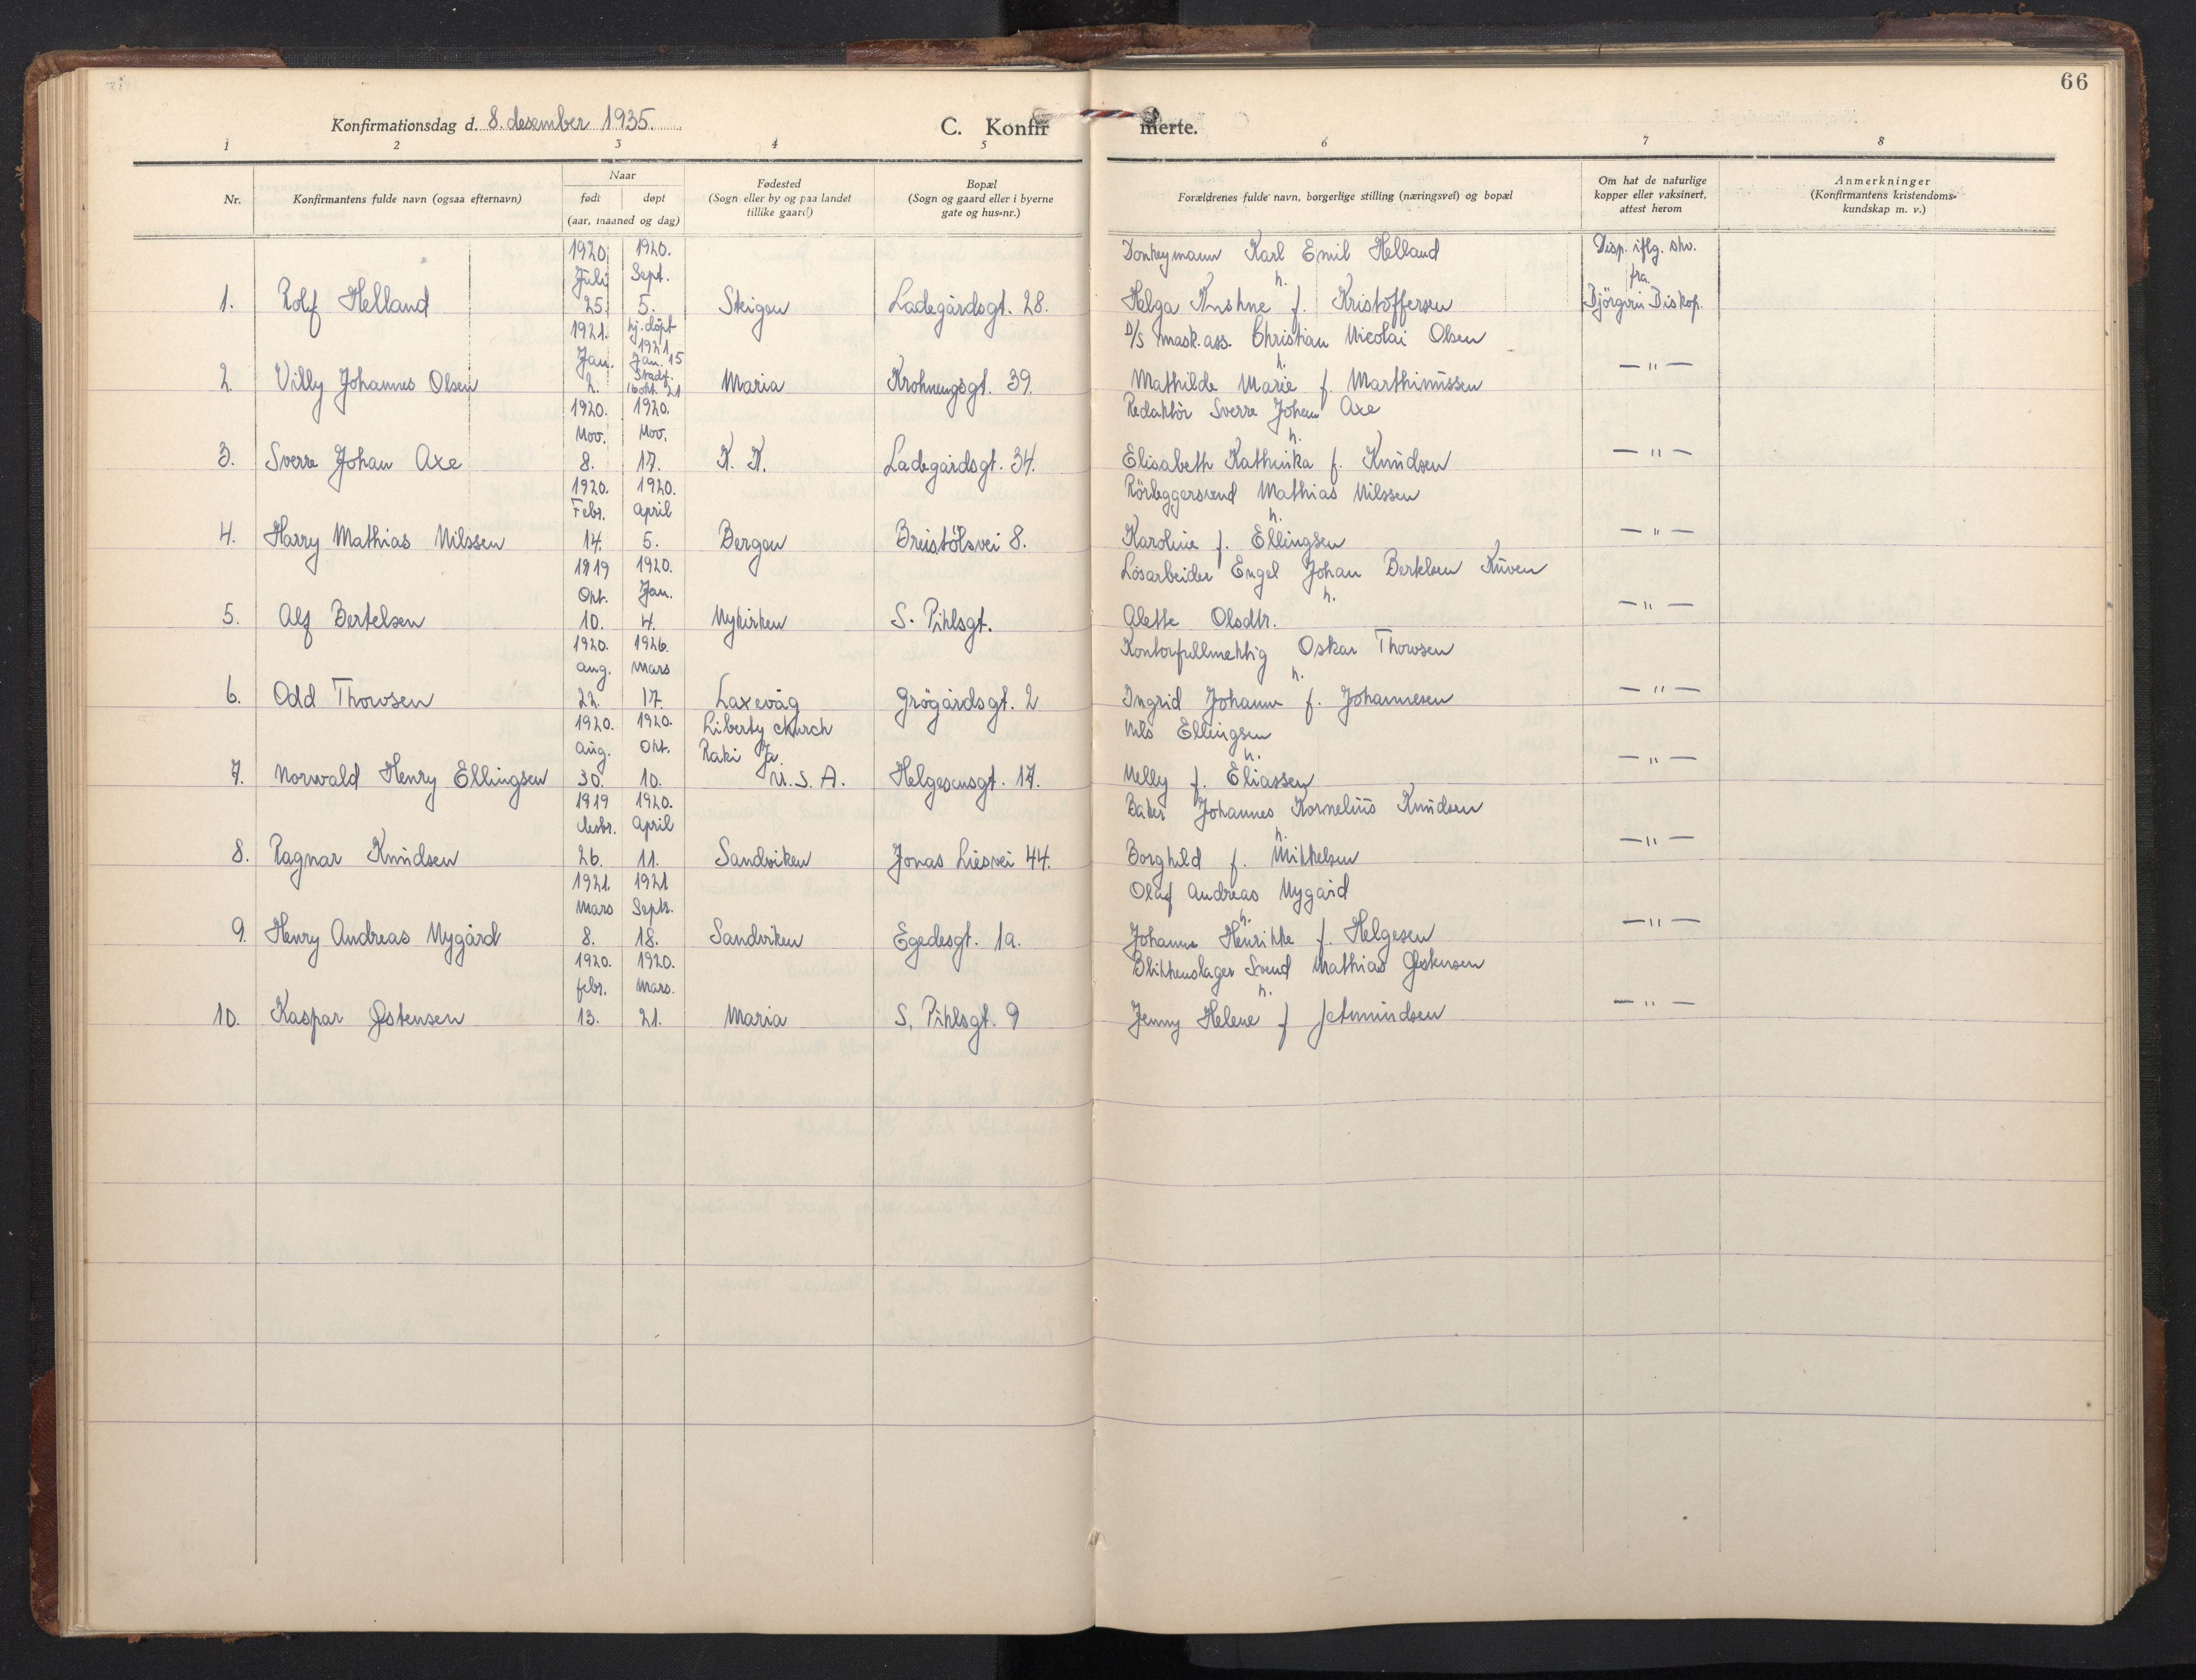 66
Konfirmationsdag d. 8. desember 1935.
C. Konfirmerte.
1 2 3 4 5 6 7 8
Nr.
Konfirmantens fulde navn (ogsaa efternavn)
Naar
født døpt
(aar, maaned og dag)
Fødested
(Sogn eller by og paa landet
tillike gaard)
Bopæl
(Sogn og gaard eller i byerne
gate og hus-nr.)
Forældrenes fulde navn, borgerlige stilling (næringsvei) og bopæl
Om hat de naturlige
kopper eller vaksinert,
attest herom
Anmerkninger
(Konfirmantens kristendoms-
kundskap m. v.)
1920. 1920. Donkeymann Karl Emil Helland Disp. iflg. skr.
Juli Sept. h. fra
1. Rolf Helland 25. 5. Steigen Ladegårdsgt. 28. Helga Kristine f. Kristoffersen Bjørgvin Biskop.
1921. hj. döpt D/S mask. ass. Christian Nicolai Olsen
1921
Jan. Jan. 15 h. — " —
Stadf.
2. Villy Johannes Olsen 2. 16 okt. 21 Maria Krohnengsgt. 39. Mathilde Marie f. Marthinussen
1920. 1920. Redaktör Sverre Johan Axe
Nov. Nov. h.
3. Sverre Johan Axe 8. 17. K. K. Ladegårdsgt. 34. Elisabeth Kathinka f. Knudsen — " —
1920. 1920. Rörleggersvend Mathias Nilssen
Febr. April h.
4. Harry Mathias Nilssen 14. 5. Bergen Breistölsvei 8. Karoline f. Ellingsen — " —
1919 1920. Lösarbeider Engel Johan Bertelsen Kuven
Okt. Jan. h.
5. Alf Bertelsen 10. 4. Nykirken S. Pihlsgt. Alette Olsdtr. — " —
1920. 1926. Kontorfullmektig Oskar Thowsen
Aug. Mars h.
6. Odd Thowsen 22. 17. Laxevåg Grögårdsgt. 2 Ingrid Johanne f. Johannesen — " —
1920. 1920. Liberty church Nils Ellingsen
Aug. Okt. Raki Ja. h.
7. Norvald Henry Ellingsen 30. 10. U.S.A. Helgesensgt. 17. Nelly f. Eliassen — " —
1919 1920. Baker Johannes Kornelius Knudsen
desbr. April h.
8. Ragnar Knudsen 26. 11. Sandviken Jonas Liesvei 44. Borghild f. Mikkelsen — " —
1921. 1921 Olaf Andreas Nygård
Mars Septr. h.
9. Henry Andreas Nygård 8. 18. Sandviken Egedesgt. 1a. Johanne Henrikke f. Helgesen — " —
1920. 1920. Blikkenslager Svend Mathias Østensen
febr. Mars. h.
10. Kaspar Østensen 13. 21. Maria S. Pihlsgt. 9 Jenny Helene f. Jetmundsen — " —